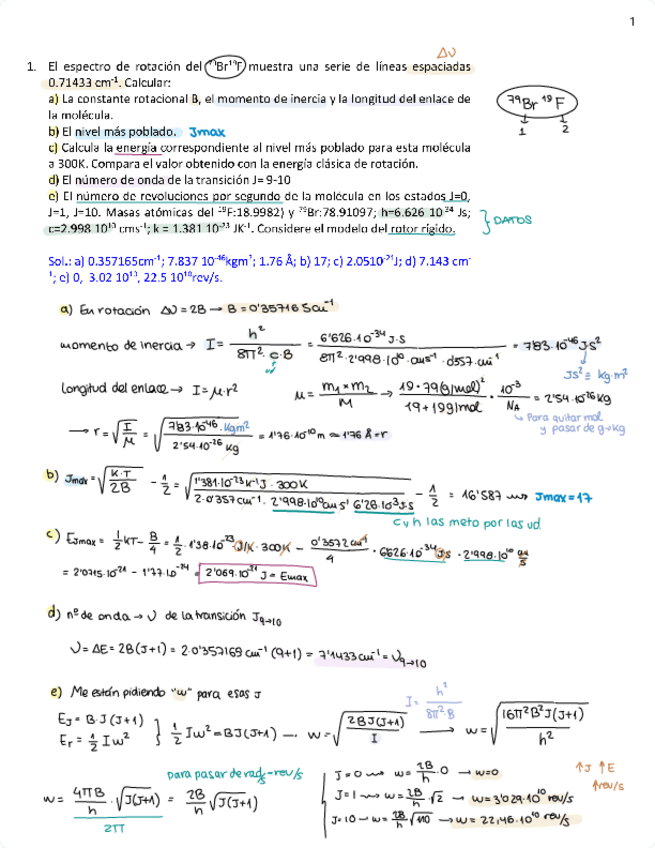 1
Δυ
1. El espectro de rotación del ⁷⁹Br¹⁹F muestra una serie de líneas espaciadas
0.71433 cm⁻¹. Calcular:
a) La constante rotacional B, el momento de inercia y la longitud del enlace de
la molécula.
b) El nivel más poblado. Jmax
c) Calcula la energía correspondiente al nivel más poblado para esta molécula
a 300K. Compara el valor obtenido con la energía clásica de rotación.
d) El número de onda de la transición J= 9-10
e) El número de revoluciones por segundo de la molécula en los estados J=0,
J=1, J=10. Masas atómicas del ¹⁹F:18.9982) y ⁷⁹Br:78.91097; h=6.626 10⁻³⁴ Js;
c=2.998 10¹⁰ cms⁻¹; k = 1.381 10⁻²³ JK⁻¹. Considere el modelo del rotor rígido.
⁷⁹Br ¹⁹F
1 2
} DATOS
Sol.: a) 0.357165cm⁻¹; 7.837 10⁻⁴⁶kgm²; 1.76 Å; b) 17; c) 2.0510⁻²¹J; d) 7.143 cm⁻
¹; e) 0, 3.02 10¹⁰, 22.5 10¹⁰rev/s.
a) En rotación Δυ = 2B → B = 0'35716 5cm⁻¹
momento de inercia → I = h² / 8π²·c·B = 6'626·10⁻³⁴ J·S / 8π²·2'998·10¹⁰ cm s⁻¹ · 0'357 cm⁻¹ = 7'83·10⁻⁴⁶ Js²
Js² ≡ kg·m²
longitud del enlace → I = μ·r² μ = m₁×m₂ / M → 19·79(g/mol)² / 19+79g/mol · 10⁻³ / NA = 2'54·10⁻²⁶ kg
↳ Para quitar mol
y pasar de g→kg
→ r = √(I/μ) = √(7'83·10⁻⁴⁶ kgm² / 2'54·10⁻²⁶ kg) = 1'76·10⁻¹⁰ m = 1'76 Å = r
b) Jmax = √(K·T / 2B) - 1/2 = √(1'381·10⁻²³ K⁻¹J · 300K / 2·0'357cm⁻¹ · 2'998·10¹⁰ cm s⁻¹ 6'26·10⁻³⁴J·s) - 1/2 = 16'587 → Jmax = 17
c y h las meto por las ud
c) EJmax = 1/2 kT - B/4 = 1/2 · 1'38·10⁻²³ J/K · 300K - 0'3572 cm⁻¹ / 4 · 6'626·10⁻³⁴ J·s · 2'998·10¹⁰ cm/s
= 2'0715·10⁻²¹ - 1'77·10⁻²⁴ = 2'069·10⁻²¹ J = Emax
d) nº de onda → υ de la transición J9→10
υ = ΔE = 2B(J+1) = 2·0'357169 cm⁻¹ (9+1) = 7'1433 cm⁻¹ = υ9→10
e) Me están pidiendo "w" para esas J
I = h² / 8π²·B
EJ = B·J(J+1)
Er = 1/2 Iw²
} 1/2 Iw² = BJ(J+1) → w = √(2BJ(J+1) / I) → w = √(16π²B²J(J+1) / h²)
para pasar de rad/s → rev/s
w = 4πB/h · √J(J+1) / 2π = 2B/h √J(J+1)
J = 0 → w = 2B/h · 0 → w=0
J = 1 → w = 2B/h · √2 → w = 3'029·10¹⁰ rev/s
J = 10 → w = 2B/h √110 → w = 22,46·10¹⁰ rev/s
↑J ↑E
↑rev/s